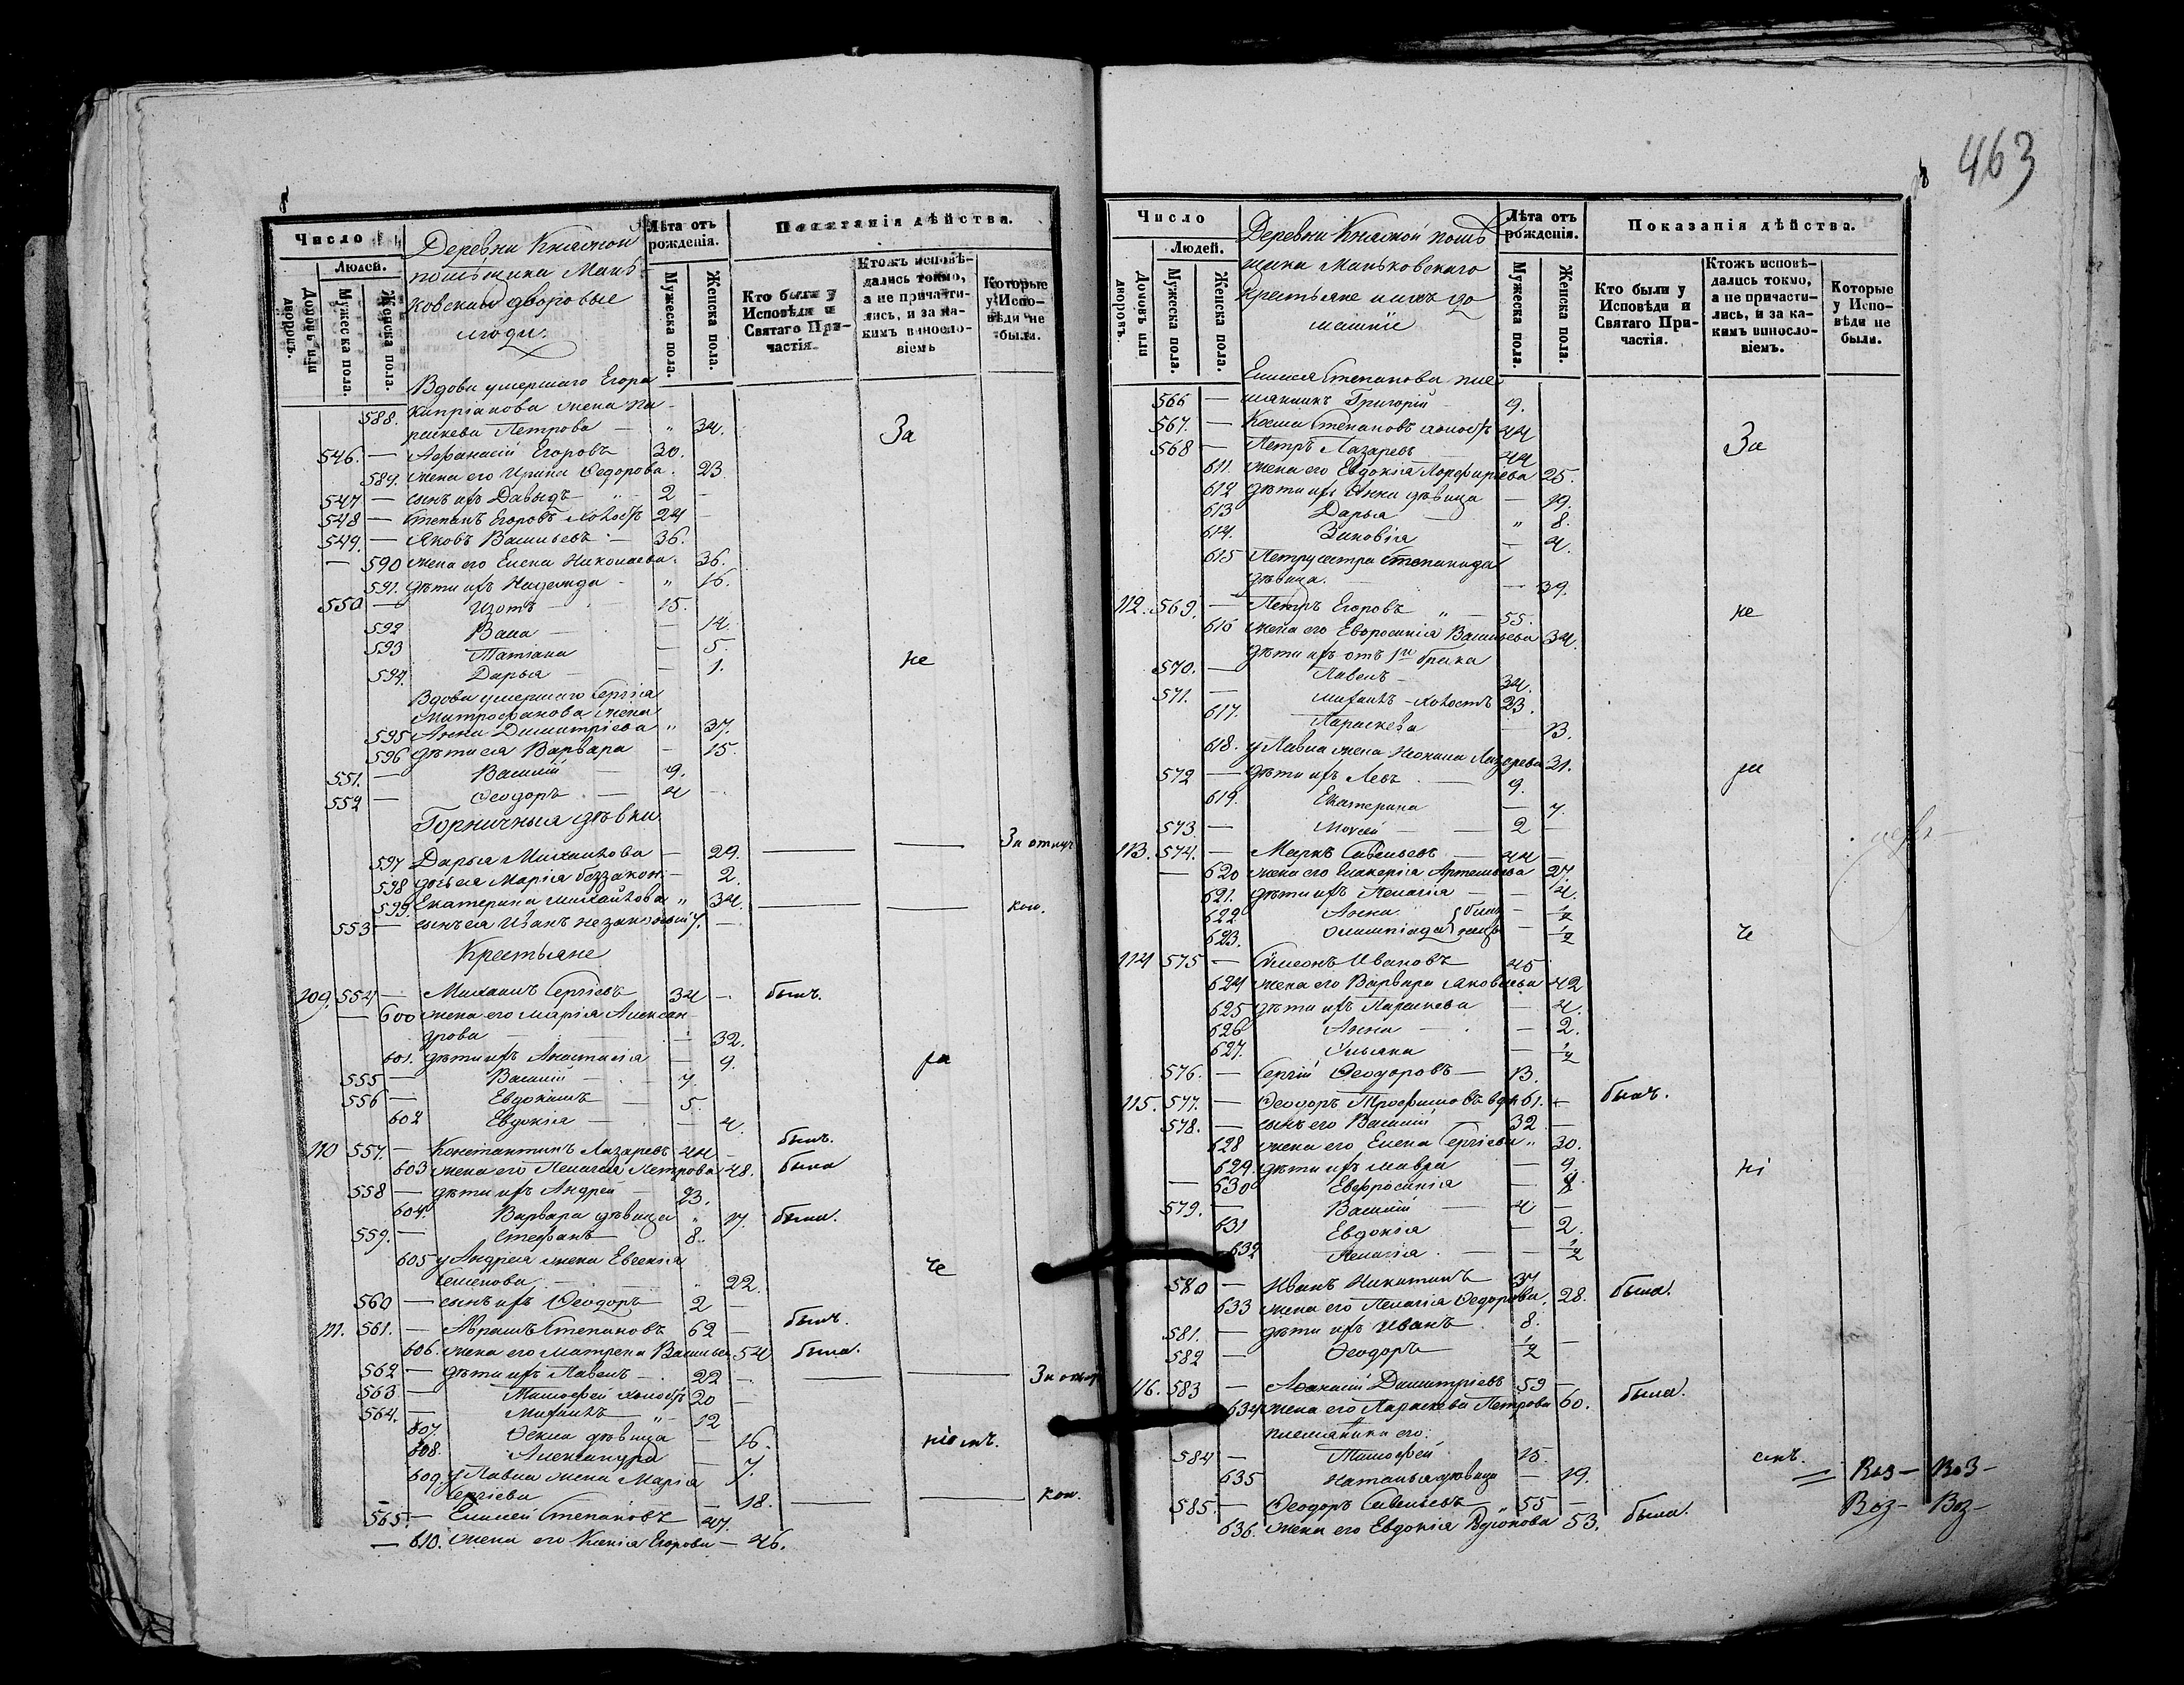 8
Число
Людей.
Домовъ или дворовъ.
Мужеска пола.
Женска пола.
Деревни Княжной
помѣщика Мань-
ковскаго дворовые
люди.
Лѣта отъ рожденія.
Мужеска пола.
Женска пола.
Показанія дѣйства.
Кто были у Исповѣди и Святаго Причастія.
Ктожъ исповѣдались токмо, а не причастились, и за какимъ винословіемъ
Которые у Исповѣди не были.
Вдова умершаго Егора
588. Кипріанова жена Па-
раскева Петрова — " 34. За
546. — Афанасій Егоровъ 30.
589. жена его Ирина Ѳедорова. 23
547 — сынъ ихъ Давыдъ 2 -
548 — Степанъ Егоровъ холостъ 24 -
549. — Яковъ Васильевъ — 36.
— 590 жена его Елена Николаева. 36.
591. дѣти ихъ Надежда " 16.
550 — Изотъ 15.
592 Васса — 14.
593 Татіана — 5.
594. Дарья — 1. не
Вдова умершаго Сергія
Митрофанова жена
595 Анна Димитріева " 37.
596 дѣти ея Варвара — 15.
551. — Василій — 9.
552 — Ѳеодоръ — 4 -
Горничныя дѣвки
597 Дарья Михайлова — 29. — — За отлуч
598 дочь ея Марія беззакон. — 2.
599. Екатерина Михайлова " 34. — — кою.
553 — сынъ ея Иванъ незаконный 7. —
Крестьяне
109. 554 — Михаилъ Сергіевъ 34 — былъ.
— 600 жена его Марія Алексан-
дрова — 32.
601. дѣти ихъ Анастасія — 9. ра
555 — Василій — 7.
556 — Евдокимъ — 5.
602 Евдокія — 4.
110 557. — Константинъ Лазаревъ 44 - былъ.
603 жена его Пелагея Петрова 48. была
558 — дѣти ихъ Андрей 23.
604. Варвара дѣвица " 17. была.
559. — Стефанъ 8.
605 у Андрея жена Евгенія
Семенова — 22. че
560 — сынъ ихъ Ѳеодоръ 2 —
111. 561. — Абрамъ Степановъ 62 — былъ.
606. жена его Матрена Васильев 54 была.
562 — дѣти ихъ Павелъ — 22 — — — За отлуч
563 — Тимофей холостъ 20 —
564. — Михаилъ " 12
607. Ѳекла дѣвица — 16. ніемъ.
608. Александра — 7.
609. у Павла жена Марія
Сергіева — 18. — — кою.
565. — Елисей Степановъ 47.
— 610. жена его Ксенія Егорова — 46.
463
8
Число
Людей.
Домовъ или дворовъ.
Мужеска пола.
Женска пола.
Деревни Княжной помѣ
щика Маньковскаго
крестьяне и ихъ до
машніе
Лѣта отъ рожденія.
Мужеска пола.
Женска пола.
Показанія дѣйства.
Кто были у Исповѣди и Святаго Причастія.
Ктожъ исповѣдались токмо, а не причастились, и за какимъ винословіемъ.
Которые у Исповѣди не были.
Елисея Степанова пле
566 — мянникъ Григорій — 9.
567. — Косма Степановъ холостъ 44 За
568 — Петръ Лазаревъ 44
611. жена его Евдокія Порфиріева 25.
612 дѣти ихъ Анна дѣвица — 19.
613 Дарья " 8.
614. Зиновія — 4.
615 Петру сестра Степанида
дѣвица. — 39.
112. 569. — Петръ Егоровъ " — 55. не
616 жена его Евфросинія Васильева 34.
дѣти ихъ отъ 1го брака
570. — Павелъ — 34.
571. — Михаилъ — холостъ 23.
617. Параскева — 13.
618. у Павла жена Неонила Лазарева 31.
572 — дѣти ихъ Левъ — 9. ра
619. Екатерина — 7.
573 — Моисей — 2 —
113. 574. — Маркъ Савельевъ — 44 —
— 620 жена его Гликерія Артемьева 27.
621. дѣти ихъ Пелагія — 4.
622 Анна } близ — ½
623. Олимпіада } нецы — ½ че
114 575 — Симеонъ Ивановъ 45
624 жена его Варвара Яковлева 42
625 дѣти ихъ Параскева — 4.
626 Анна — 2.
627. Ульяна — ½
576. — Сергій Ѳеодоровъ — 13.
115. 577. — Ѳеодоръ Трофимовъ вдов 61. — былъ.
578. — сынъ его Василій 32 —
628 жена его Елена Сергіева " 30.
629. дѣти ихъ Мавра — 9. ні
— 630 Евфросинія — 8
579. — Василій — 4 —
631 Евдокія — 2.
632 Пелагія — ½
580 — Иванъ Никитинъ 37
633 жена его Пелагія Ѳедорова. 28. была.
581. — дѣти ихъ Иванъ 8.
582 — Ѳеодоръ ½ —
116. 583 — Афанасій Димитріевъ 59 —
634 жена его Параскева Петрова 60. была.
племянники его:
584 — Тимофей 15.
635 Наталья дѣвица — 19. емъ.
585. — Ѳеодоръ Савельевъ 55 —
636. жена его Евдокія Родіонова 53. была.